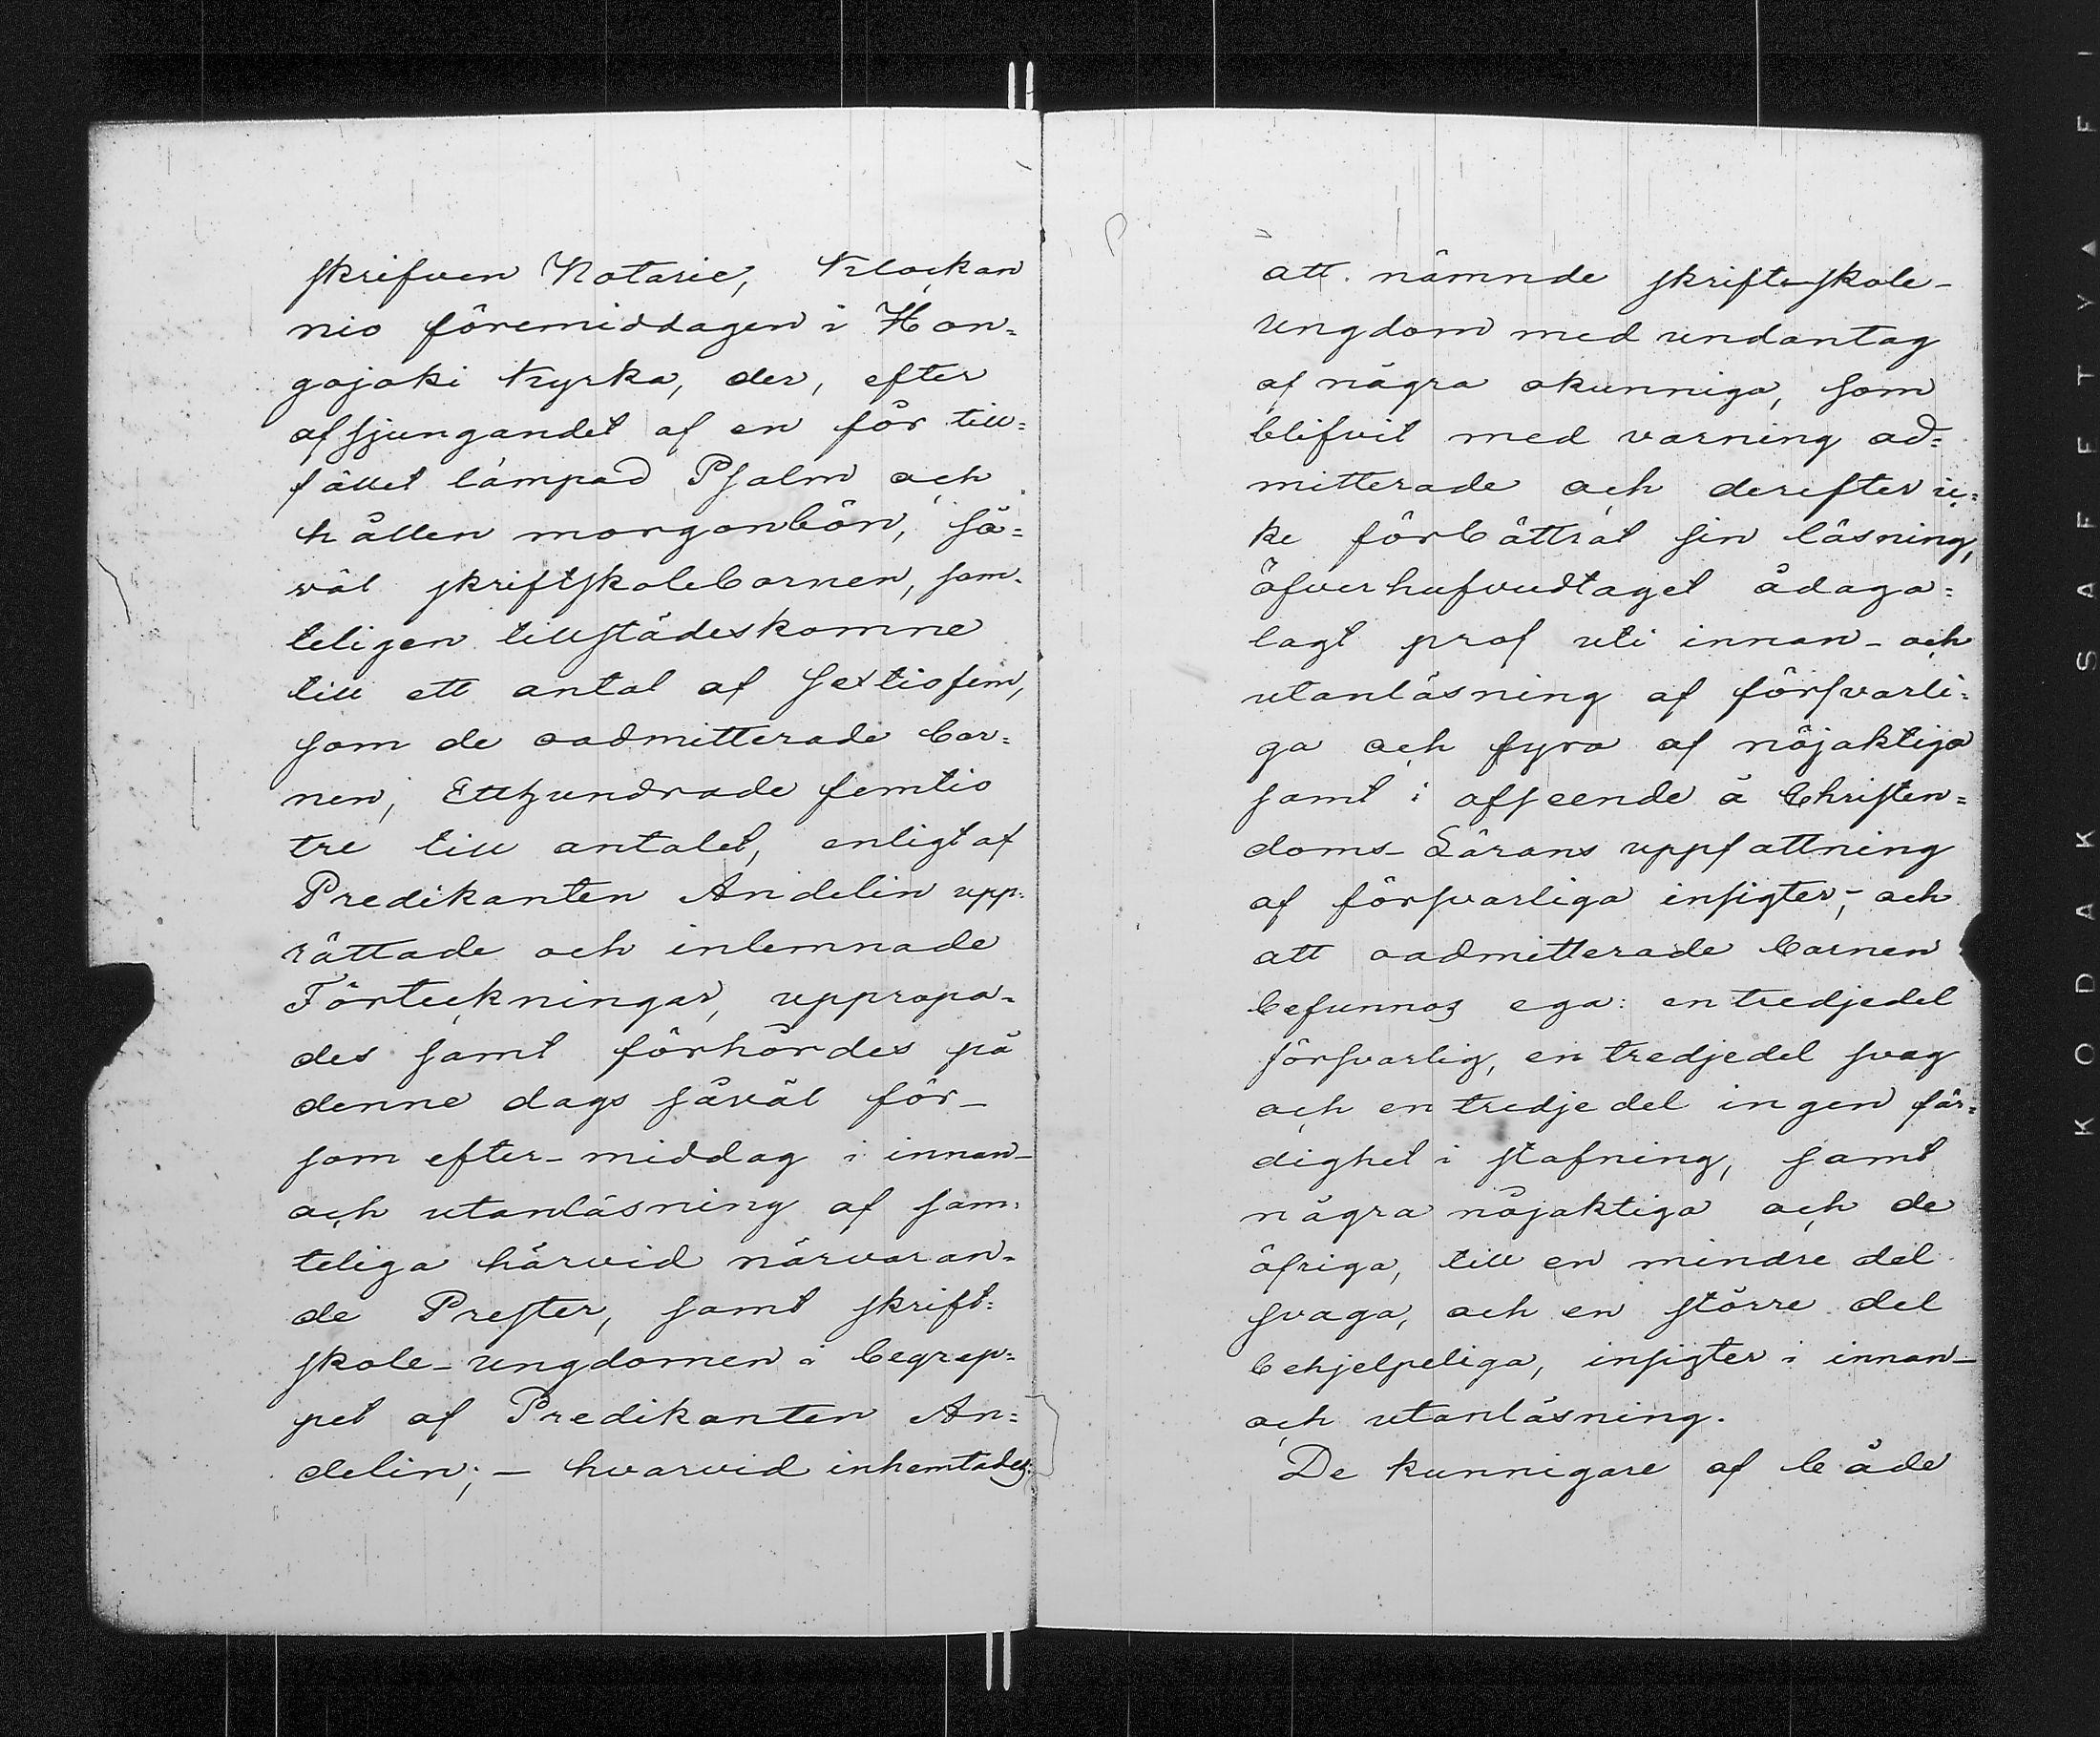 skrifven Notarie, Klockan
nio föremiddagen i Kan=
gajaki Kyrka, der, efter
afsjungandet af en för till=
fället lämpad Psalm och
hållen morgonbön, så=
wäl skriftskolebarnen, sam=
teligen tillstädeskomne
till ett antal af Sextiofem,
som de oadmitterade bar=
nen, Etthundrade femtio
tre till antalet, enligt af
Predikanten Andelin upp=
rättade och inlemnade
Förteckningar, uppropa=
des samt förhördes på
denne dags såväl för-
som efter-middag i innan-
och utanläsning af sam=
teliga härvid närvaran=
de Prester, samt skrift=
skole-ungdomen i begrep=
pet af Predikanten An=
delin; — hvarvid inhemtades:
att nämnde skrifte-skole-
ungdom med undantag
af några okunniga, som
blifvit med varning ad=
mitterade och derefter ic=
ke förbättrat sin läsning,
öfverhufvudtaget ådaga=
lagt prof uti innan- och
utanläsning af försvarli=
ga och fyra af nöjaktiga
samt i afseende å Christen=
doms-Lärans uppfattning
af försvarliga insigter; och
att oadmitterade barnen
befunnos ega: en tredjedel
försvarlig, en tredjedel svag
och en tredjedel ingen fär=
dighet i stafning, samt
några nöjaktiga och de
öfriga, till en mindre del
svaga, och en större del
behjelpeliga, insigter i innan-
och utanläsning.
De kunnigare af både
KODAK SAFETY AFI